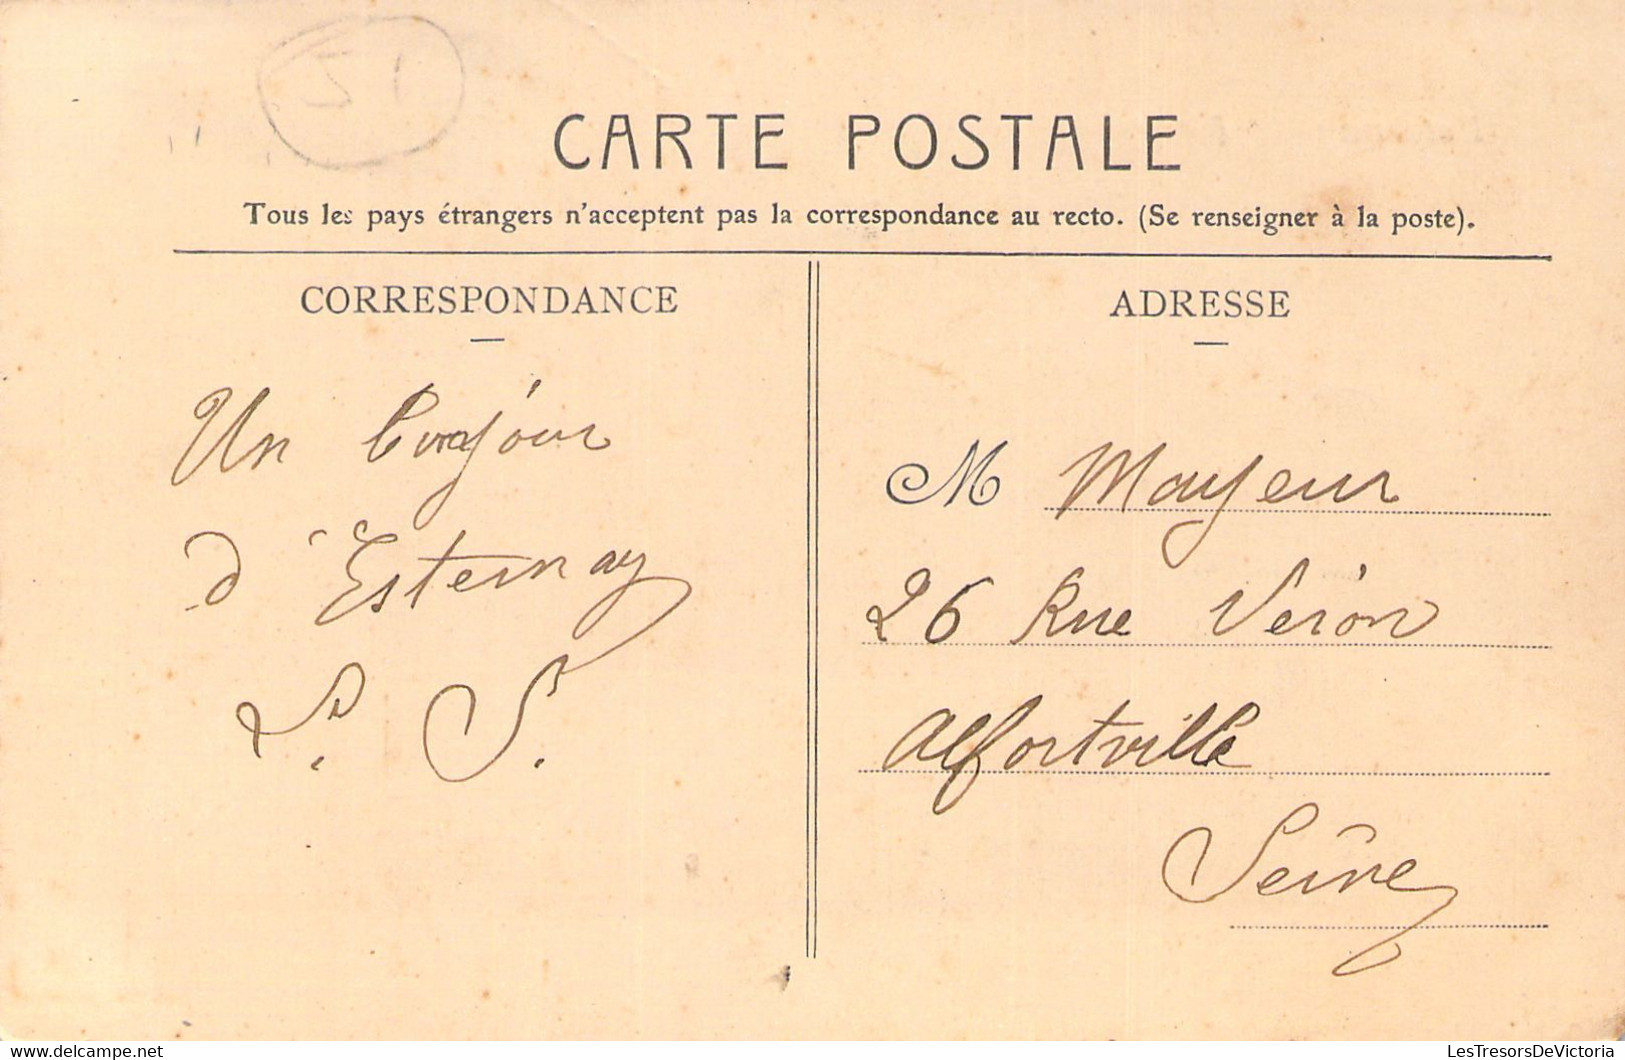 51
CARTE POSTALE
Tous les pays étrangers n'acceptent pas la correspondance au recto. (Se renseigner à la poste).
CORRESPONDANCE
Un bonjour
d'Esternay
S. S.
ADRESSE
M Mayeur
26 Rue Véron
Alfortville
Seine
LesTresorsDeVictoria